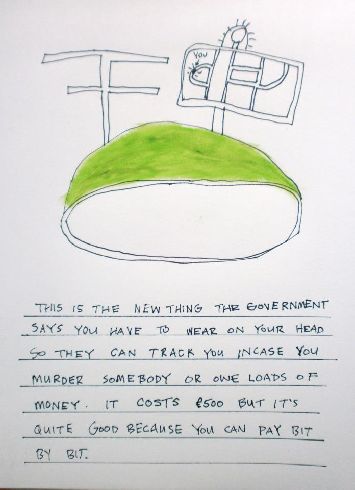 YOU
THIS IS THE NEW THING THE GOVERNMENT
SAYS YOU HAVE TO WEAR ON YOUR HEAD
SO THEY CAN TRACK YOU INCASE YOU
MURDER SOMEBODY OR OWE LOADS OF
MONEY. IT COSTS £500 BUT IT'S
QUITE GOOD BECAUSE YOU CAN PAY BIT
BY BIT.